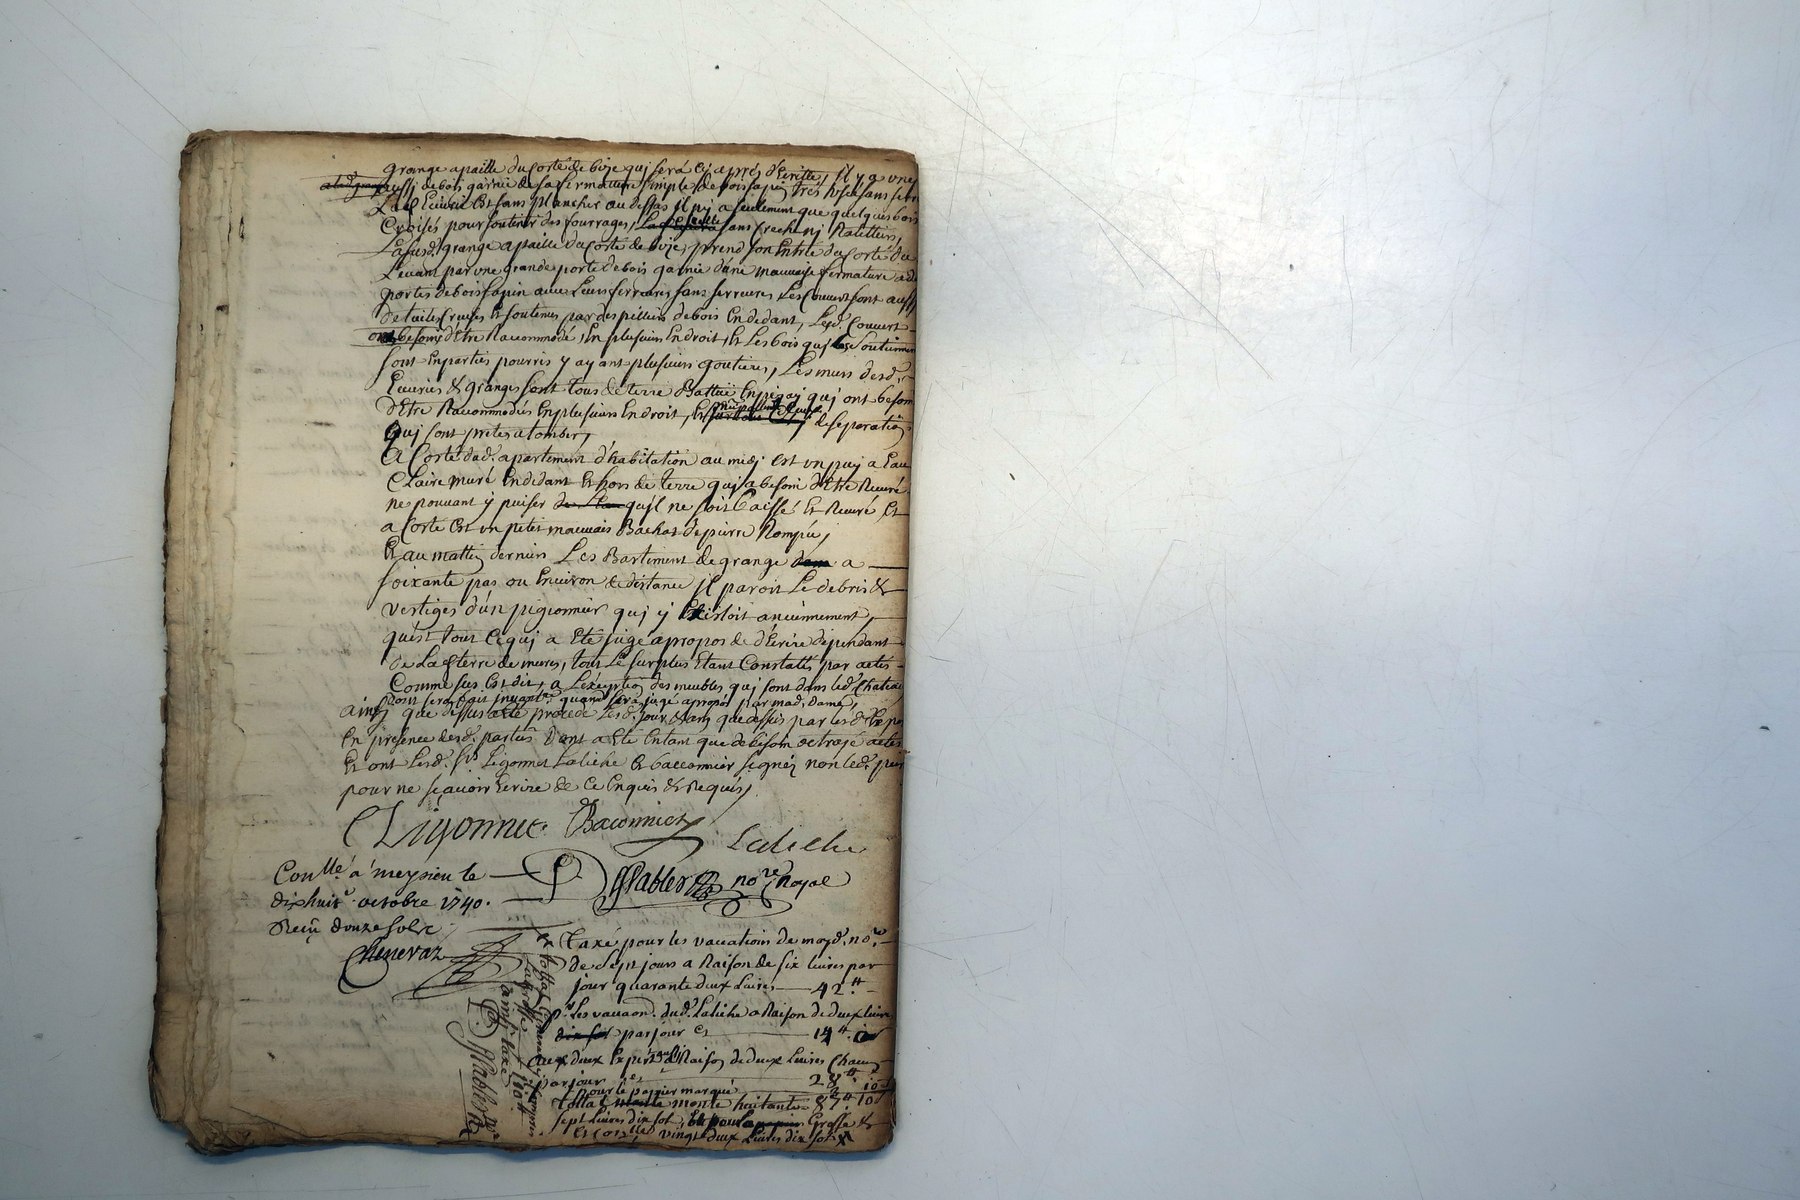 grange apaille du Corté de bize quj sera Cy apres d'Ecritte, Il y a une
de bois garnie de sa fermature simple de bois sapin tres usée sans
Ecurie Est sans plancher au dessus Il nj a seulement que quelques bois
Croisés pour soutenir des fourrages, sans Creche nj Ratelliers,
La susd. grange apaille du Corté de bize, prend son Entrée du Corté du
Levant par une grande porte de bois garnie d'une mauvaise fermature a
portes de bois sapin avec Leurs ferrures sans serrures, Les Couvert sont aussy
de tuiles Creuses Et soutenus par des pilliers de bois En dedant, Lesd. Couvert
ont besoins d'Etre Racommodé, En plusieurs Endroit, Et Les bois quj Les soutiennent
sont En parties pourris y ayant plusieurs goutieres, Les murs desd.
Ecuries & granges sont tous de terre Battüe En pizaj quj ont besoin
d'Etre Racommodés En plusieurs Endroit, Et de separation
quj sont pretes a tomber,
A Corté dud. apartement d'habitation au midj est un puy a Eau
Claire muré En dedant Et hors de terre quj a besoin d'Etre Recuré
ne pouvant y puiser de l'Eau qu'jl ne soit Baissé Et Recuré, Et
a Corté Est un petit mauvais Bachat de pierre Rompüe,
Et au mattin derniers Les Bastiment de grange dans a
soixante pas ou Environ de distance jl paroit Le debris &
vestiges d'un pigeonnier quj y Existoit anciennement,
qu'est tout Ce quj a Eté jugé apropos de d'Ecrire dépendant
de La terre de mures, tout Le surplus Etant Constatés par actes
Comme sus Est dit, a L'exception des meubles quj sont dans led. Chateau
dont sera fait jnvantre. quand sera jugé apropos par mad. dame,
ainsj que dessus a eté procédé Lesd. jour & an que dessus par lesd.
En presence desd. parties Dont a Eté Entant que de besoin octrojé actes
Et ont Lesd. Srs. Ligonnet Laliche Et baconnier signés non led.
pour ne sçavoir Ecrire de Ce Enquis & Requis,
Ligonnet Baconnier
Laliche
Conlle. á meysieu le
dixhuit. octobre 1740.
Reçu douze sols
Chenevaz
no.re Royal
Taxé pour les vacations de moyd. no.re
de sept jours a Raison de six livres par
jour quarante deux Livres 42 ₶
P. Les vacaon. dud. Laliche a Raison de deux livres
dix sol par jour Cy 14 ₶
aux deux Expert a Raison de deux Livres Chacun
par jour 28 ₶
pour le papier marqué 10
Total monte huitante 87 ₶ 10
sept Livres dix sol, Grosse &
Et Con.lle vingt deux Livres dix sols